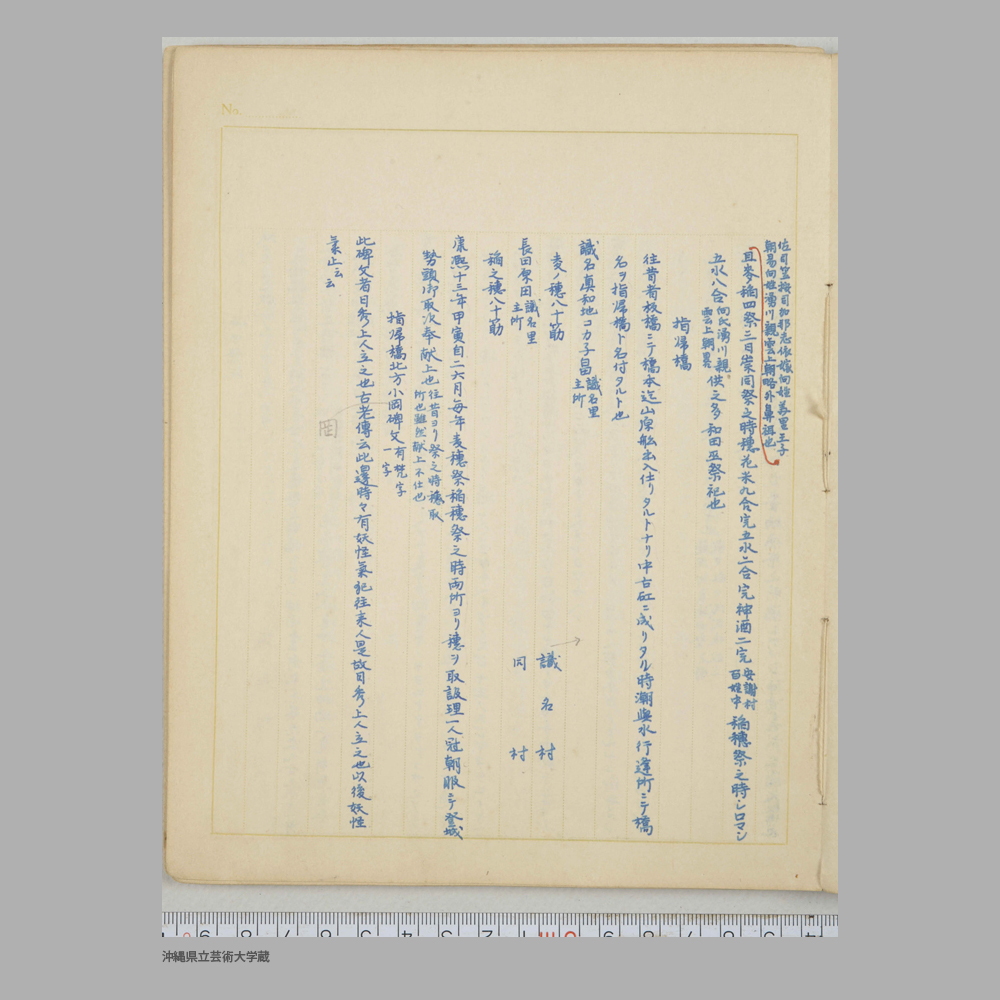 佐司笠按司加那志依嫁向姓義里王子
朝易向姓湧川親雲上朝略外鼻祖也
且麥稲四祭三日崇同祭之時穂花米九合完五水二合完神酒二完 安謝村百姓中 稲穂祭之時シロマシ
五水八合 向氏湧川親雲上朝 供之多 和田巫祭祀也
指帰橋
往昔者板橋ニテ橋本迄山深船出入仕リタルトナリ中古矼ニ成リタル時潮與水行逢所ニテ橋
名ヲ指帰橋ト名付タルト也
識名真和地コカ子畠 識名里主所
麦ノ穂八十筋
識名村
長田原田 識名里主所
同村
稲之穂八十筋
康熙十三年甲寅自二六月毎年麦穂祭稲穂祭之時両所ヨリ穂ヲ取設理一人冠朝服ニテ登城
勢頭御取次奉献上也 往昔ヨリ祭之時穂取所也雖然献上不仕也
指帰橋北方小岡碑文 有梵字一字
岡
此碑文者日秀上人立之也古老傳云此邊時々有妖怪氣記往来人是故日秀上人立之也以後妖怪
氣止云云
No.
沖縄県立芸術大学蔵